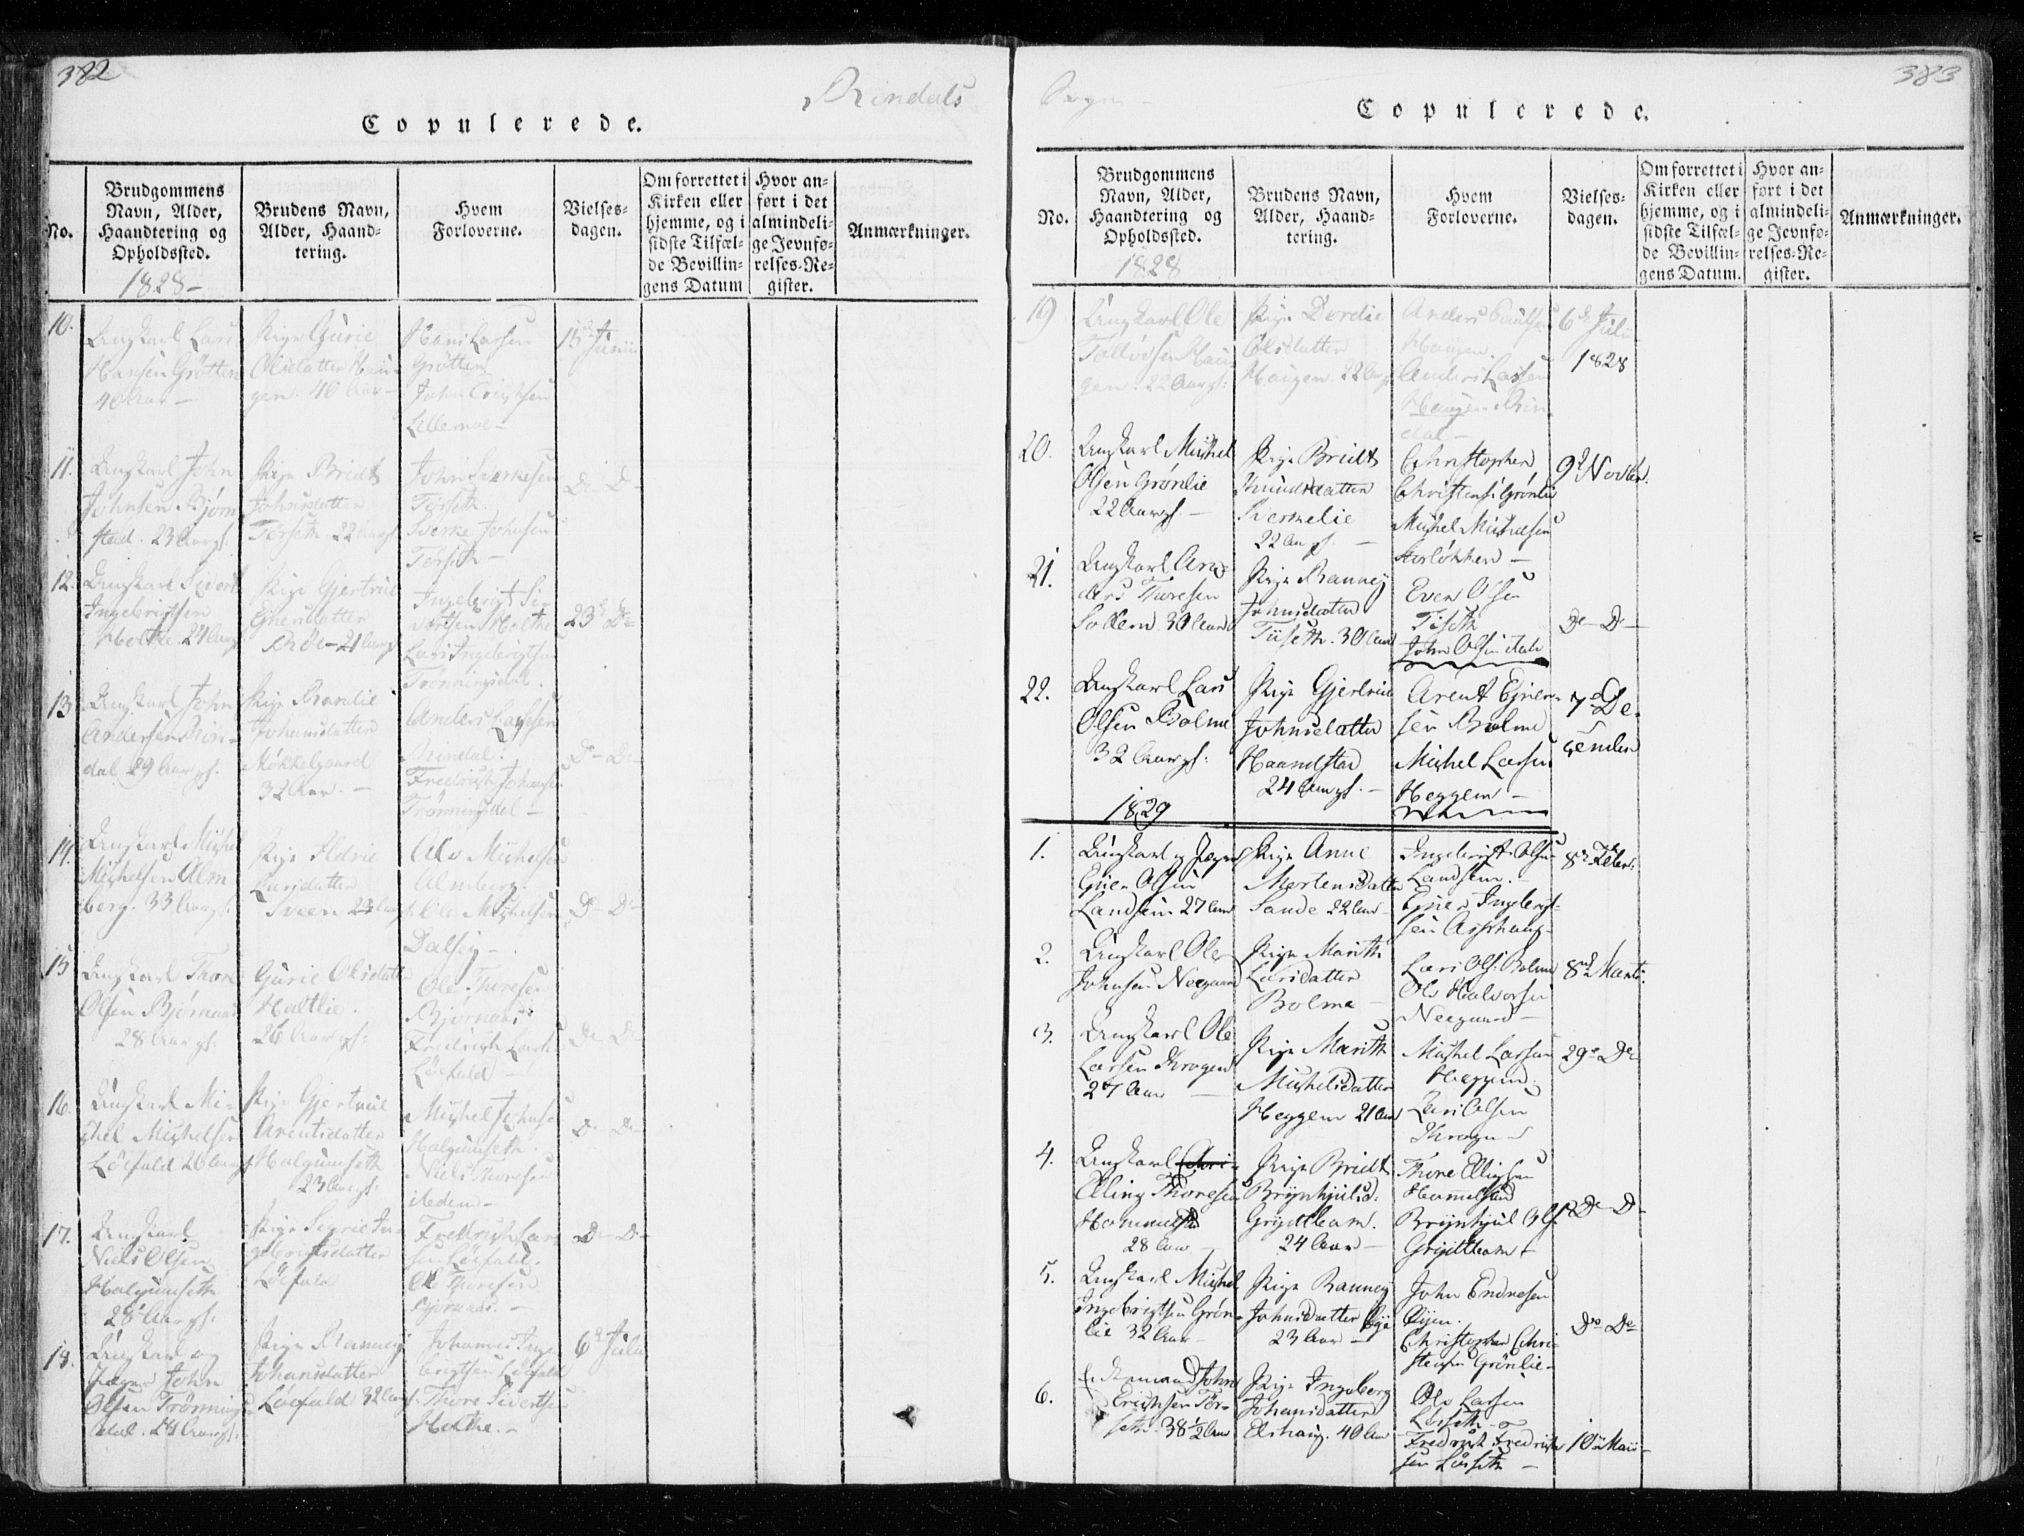 382
Rindals
Copulerede.
No.
Brudgommens Navn, Alder, Haandtering og Opholdssted.
Brudens Navn, Alder, Haand-tering.
Hvem Forloverne.
Vielses-dagen.
Om forrettet i Kirken eller hjemme, og i sidste Tilfæl-de Bevillin-gens Datum
Hvor an-ført i det almindeli-ge Jevnfø-relses-Re-gister.
Anmærkninger.
1828-
10.
Ungkarl Lars
Hansen Grøtten
40 Aar -
Pige Gurie
Olsdatter Hau-
gen. 40 Aar -
Hans Larsen
Grøtten
John
Lillemoe -
15 Junii
11.
Ungkarl John
Johnsen Bjørn
stad. 23 Aar gl.
Pige Bridt
Johnsdatter
Tørseth 22 Aar gl.
John Sverkesen
Tørseth.
Sverke Johnsen
Tørseth -
D- D
12.
Ungkarl Sivert
Ingebrigtsen
Holthe. 24 Aar gl.
Pige Gjertrud
Einersdatter
Bøe - 21 Aar gl.
Ingebrigt Si-
vertsen Holthe
Lars Ingebrigtsen
Trønningsdal.
23 D-
13
Ungkarl John
Andersen Rin-
dal 29 Aar gl.
Pige Randie
Johansdatter
Møkkelgaard
32 Aar. -
Anders Larsen
Rindal.
Fredrich Johansen
Trønningsdal -
D- D-
14.
Ungkarl Michel
Michelsen Alm
berg. 33 Aar gl.
Pige Ildrie
Larsdatter
Sveen 23 Aar gl.
Ole Michelsen
Almberg.
Ole Michelsen
Dalseg -
D- D-
15
Ungkarl Thore
Olsen Bjørnaas
28 Aar gl.
Gurie Olsdatter
Holtlie.
26 Aar gl.
Ole Thoresen
Bjørnaas
Fredrich Lars
Løefald -
D- D-
16.
Ungkarl Mi-
chel Michelsen
Løefald 26 Aar gl.
Pige Gjertrud
Arentsdatter
Halgunseth
23 Aar gl.
Michel Johnsen
Halgunseth.
Niels Thoresen
ibidem -
D- D-
17.
Ungkarl
Niels Olsen
Halgunseth
28 Aar gl.
Pige Sigrie In-
gebrigtsdatter
Løefald
Fredrich Lar-
sen Løefald.
Ole Thoresen
Bjørnaas. -
D- D-
18.
Ungkarl og
Jæger John
Olsen Trønnings
dal. 24 Aar gl.
Pige Ranney
Johansdatter
Løefald 32 Aar gl.
Johannes Inge
brigtsen Løefald
Thore Sivertsen
Holthe. -
6 Julii
383
Sogn -
Copulerede.
No.
Brudgommens Navn, Alder, Haandtering og Opholdssted.
Brudens Navn, Alder, Haand-tering.
Hvem Forloverne.
Vielses-dagen.
Om forrettet i Kirken eller hjemme, og i sidste Tilfæl-de Bevillin-gens Datum.
Hvor an-ført i det almindeli-ge Jevnfø-relses-Re-gister.
Anmærkninger.
1828
19
Ungkarl Ole
Tollevsen Hau
gen. 22 Aar gl.
Pige Dordie
Olsdatter
Haugen. 22 Aar gl.
Anders Paulsen
Haugen.
Anders Larsen
Haugen Rin-
dal -
6 Julii
1828
20.
Ungkarl Michel
Olsen Grønlie
22 Aar gl. -
Pige Bridt
Knudsdatter
22 Aar gl. -
Christopher
Christens. Grønlie
Michel Michelsen
Storløkken -
9 Novbr.
21.
Ungkarl An-
ders Thoresen
Sollem 30 Aar
Pige Ranney
Johnsdatter
Tiiseth. 30 Aar
Even Olsen
Tiseth
John Olsen
D- D-
22.
Ungkarl Lars
Olsen Bolme
32 Aar gl:
Pige Gjertrud
Johnsdatter
Haandstad
24 Aar gl. -
Arent Ejner-
sen Bolme
Michel Larsen
Heggem -
7 De-
cember
1829
1.
Ungkarl og Jæger
Einer Olsen
Landsem 27 Aar
Pige Anne
Mortensdatter
Sande 22 Aar -
Ingebrigt Olsen
Landsem. -
Einer Ingebrigt-
sen Aasshaug -
8 Febr.
2.
Ungkarl Ole
Johnsen Neegaard
Pige Marith
Larsdatter
Bolme -
Lars Ols. Bolme
Ole Halvorsen
Neegaard -
8 Marti.
3.
Ungkarl Ole
Larsen Kragen
27 Aar -
Pige Marith
Michelsdatter
Heggem 21 Aar
Michel Larsen
Heggem.
Lars Olsen
Kragen
29 D-
4.
Ungkarl
Elling Thoresen
28 Aar -
Pige Bridt
Brynhjulsd:
Grytteam.
24 Aar -
Thore Ellingsen
Brynhjul Ols.
Grytteam
D- D-
5.
Ungkarl Michel
Ingebrigtsen Grøn-
lie 32 Aar -
Pige Ranney
Johnsdatter
23 Aar -
John Endresen
Øyen.
Christopher Chri-
stensen Grønlie -
D- D-
6.
Enkemand John
Erichsen Tør-
seth. 38 1/2 Aar
Pige Ingeborg
Johansdatter
Elshaug. 40 Aar
Ole Larsen
Løseth - &
Fredrich Fredrich
sen Løseth -
10 Maii -